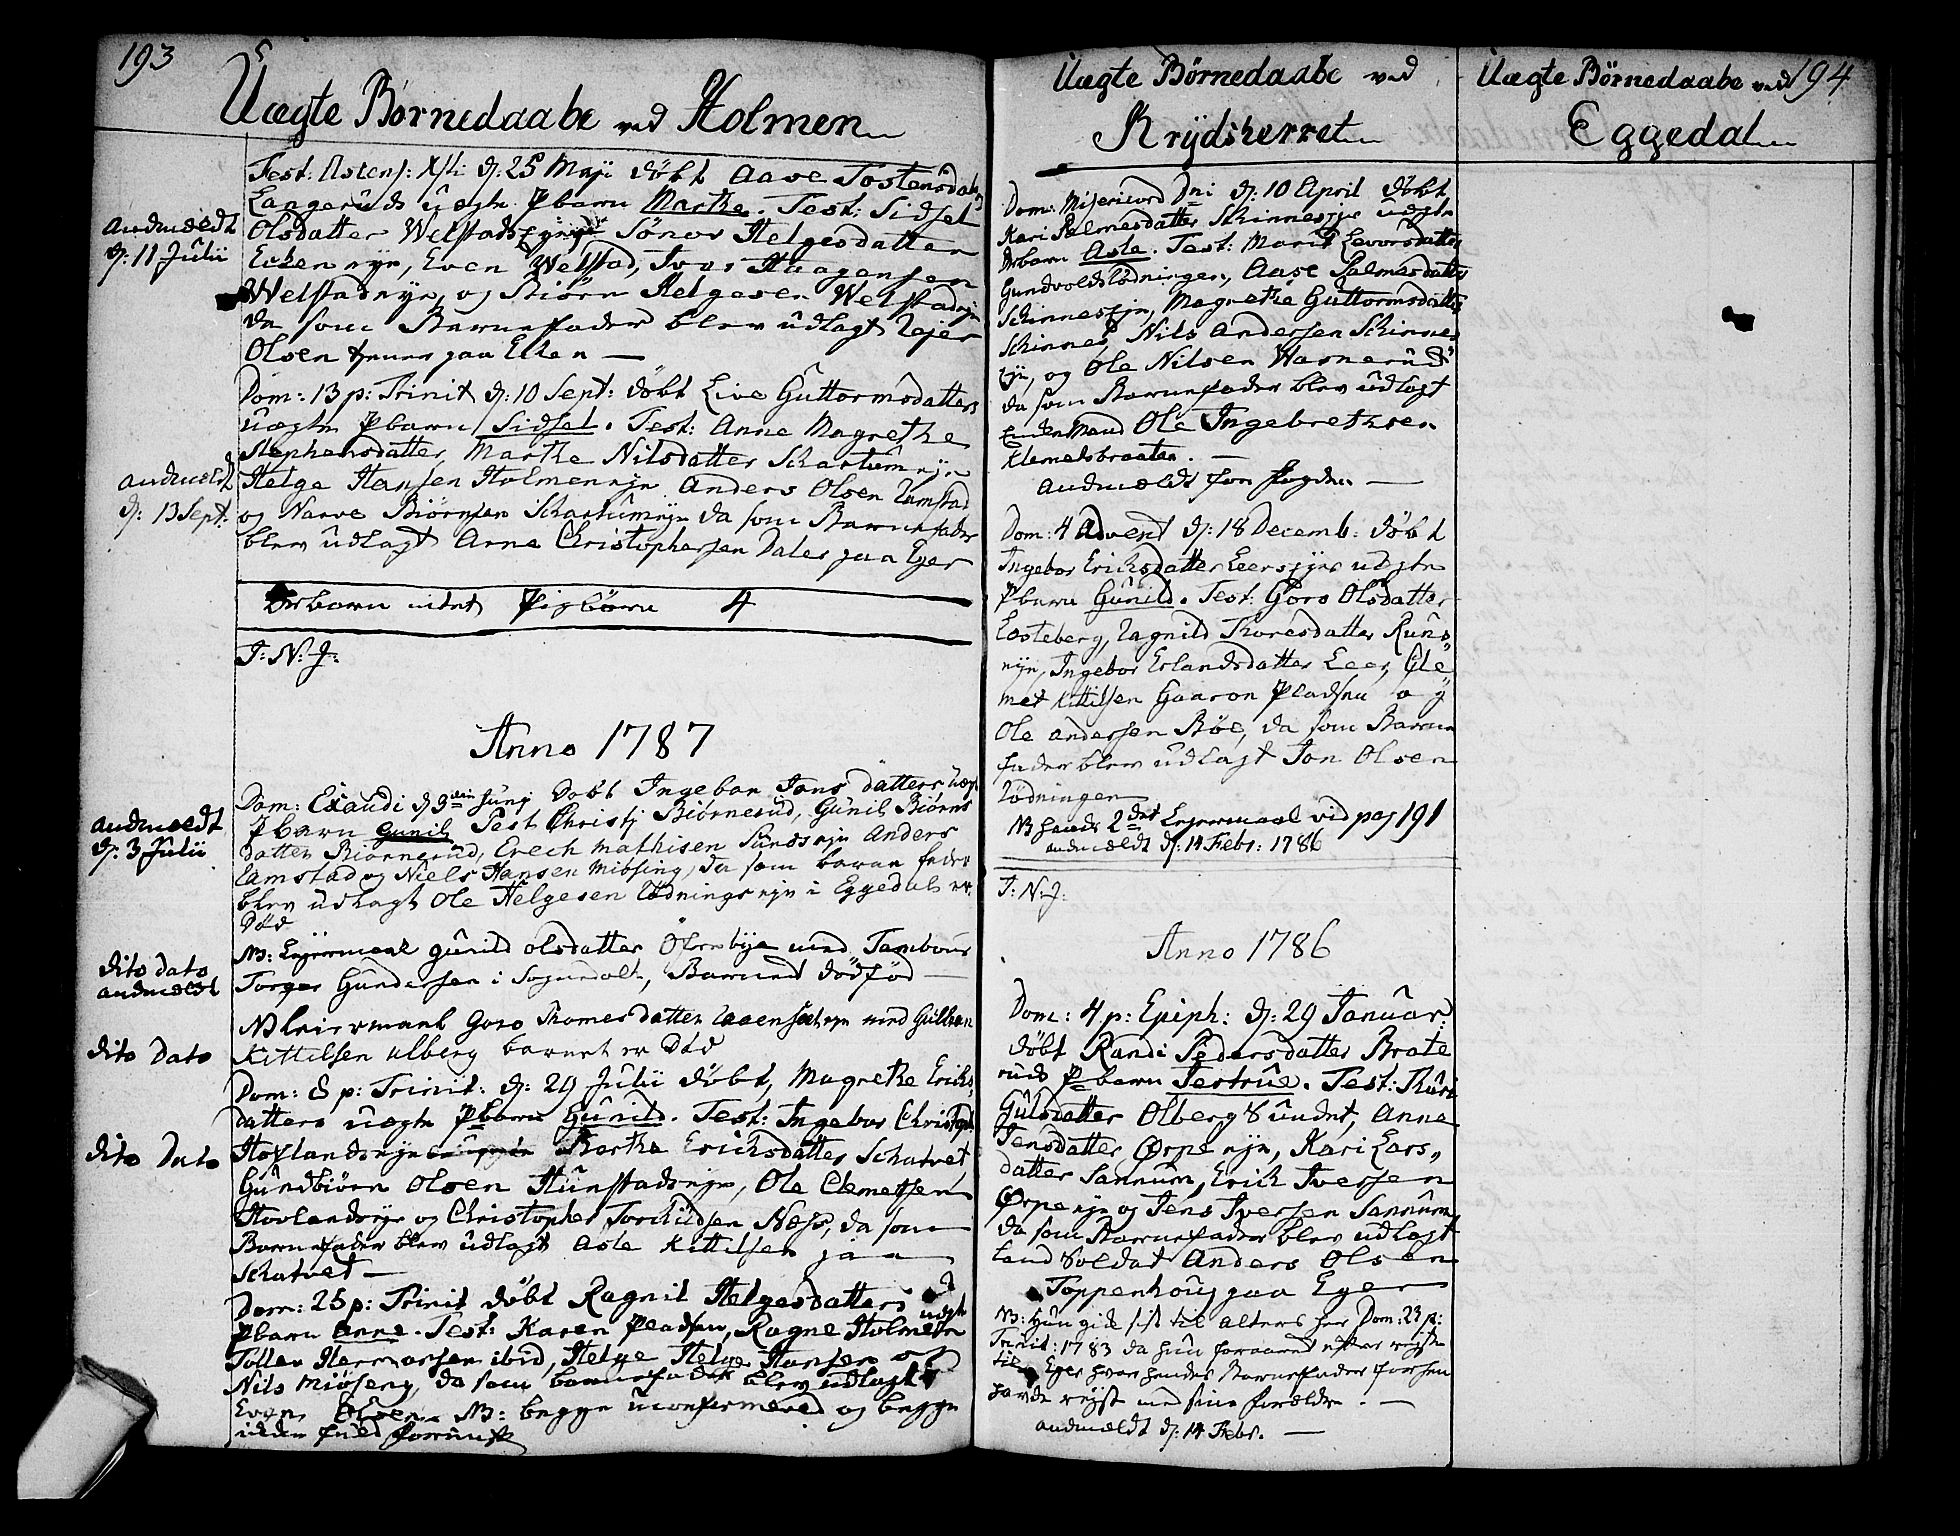 193
Uægte Børnedaabe ved Holmen
Fest: Ascens: Xsti d: 25 Maji døbt Aase Tostensdatter
Langeruds uægte Pbarn Marthe. Test: Sidsel
Olsdatter Welstads Sønov Helgesdatter
Ecken eye, Even Welstad, Ivar Haagensen
Welstadeye, og Biørn Helgesen Welstadeye
da som Barnefader blev udlagt Rejer
Olsen tiener paa Ecken —
Andmeldt
d: 11 Julii
Dom: 13 p: Trinit d: 10 Sept: døbt Live Guttormsdatters
uægte Pbarn Sidsel. Test: Anne Magrethe
Stephensdatter, Marthe Nilsdatter Schartumeye
Helge Hansen Holmeneye Anders Olsen Ramstad
og Narve Biørnsen Schartumeye da som Barnefader
blev udlagt Arne Christophersen Daler paa Eger
andmeldt
d: 13 Sept:
Drbarn intet Pigbørn 4
I: N: J:
Anno 1787
Dom: Exaudi d 3 Junj Døbt Ingebor Jons datters uægt
Pbarn Gunil Test Christj Biørnerud, Gunil Biørns
datter Biørnerud, Erech Mathisen Sundseye Anders
Ramstad og Niels Hansen Mibsing, da som barne fader
blev udlagt Ole Helgesen Rødnings eye i Eggedal er
Død
andmeldt
d: 3 Julii
NB: Lejermaal Gunild Olsdatter Ofvenbye med Tambour
Torger Gundersen i Sognedals, Barnet dødfød —
dito dato
andmeldt
NB leiermaal Goro Thomesdatter eye med Gulbran
Kittilsen Ulberg barnet er Død
dito dato
Dom: 8 p: Trinit: d: 29 Julii døbt, Magrethe Erichs
datters uægte Pbarn Gunild. Test: Ingebor Christoph:
Hovlandseye Marthe Ericksdatter Schatvet
Gundbiørn Olsen Hunstadseye, Ole Clemetsen
Hovlandseye og Christopher Torchildsen Næss, da som
Barnefader blev udlagt Asle Kittilsen paa
Schatvet —
dito Dato
Dom: 25 p: Trinit døbt Ragnil Helgesdatters uægte
Pbarn Anne. Test: Karen Pladsen, Ragne Holmen
Tollev Hermansen ibid, Helge Hansen og
Nils Miøseng, da som barnefader blev udlagt
Even Olsen. NB: begge uconfirmered og begge
uden fuld fornuft
Uægte Børnedaabe ved
Krydsherret
Dom: Misericord Dni d: 10 April døbt
Kari Palmesdatter Skinneseje uægte
Drbarn Asle. Test: Marit Levorsdatter
Gundvoldslødningen, Aase Palmesdatter
Skinneseje, Magrethe Guttormsdatter
Skinnes, Nils Andersen Skinnes
eje, og Ole Nilsen Warnerud
da som Barnefader blev udlagt
Enckemand Ole Ingebrethsen
Klemetsbraaten. —
Andmældt for Fogden —
Dom: 4 Advent d: 18 Decemb: døbt
Ingebor Ericksdatter Leerseyes uægte
Pbarn Gunild. Test: Goro Olsdatter
Losteberg, Ragnild Thoresdatter Runs
eye, Ingebor Erlandsdatter Leer, Cle
met Kittilsen Gaaron Pladsen og
Ole Andersen Bøe, da som Barne
fader blev udlagt Jon Olsen
Rødningen
NB hendes 2det Lejermaal vid pag 191
andmældt d: 14 Febr: 1786
I: N: J:
Anno 1786
Dom: 4 p: Epiph: d: 29 Januar:
døbt Randi Pedersdatter Brate
ruds Pbarn Jertrue. Test: Thuri
Gulsdatter Olberg Sundet, Anne
Jensdatter Ørpe eye, Kari Lars
datter Sannum, Erik Iversen
Ørpe eye og Jens Iversen Sannum
da som Barnefader blev udlagt
Land Soldat Anders Olsen
Toppenhoug paa Eger
NB: Hun gik sist til Alters her Dom: 23 p:
Trinit: 1783 da hun foraaret efter rejste
til Eger hvor hendes Barnefader forhen
havde rejst med sine forældre. —
andmældt d: 14 Febr. —
Uægte Børnedaabe ved 194
Eggedal